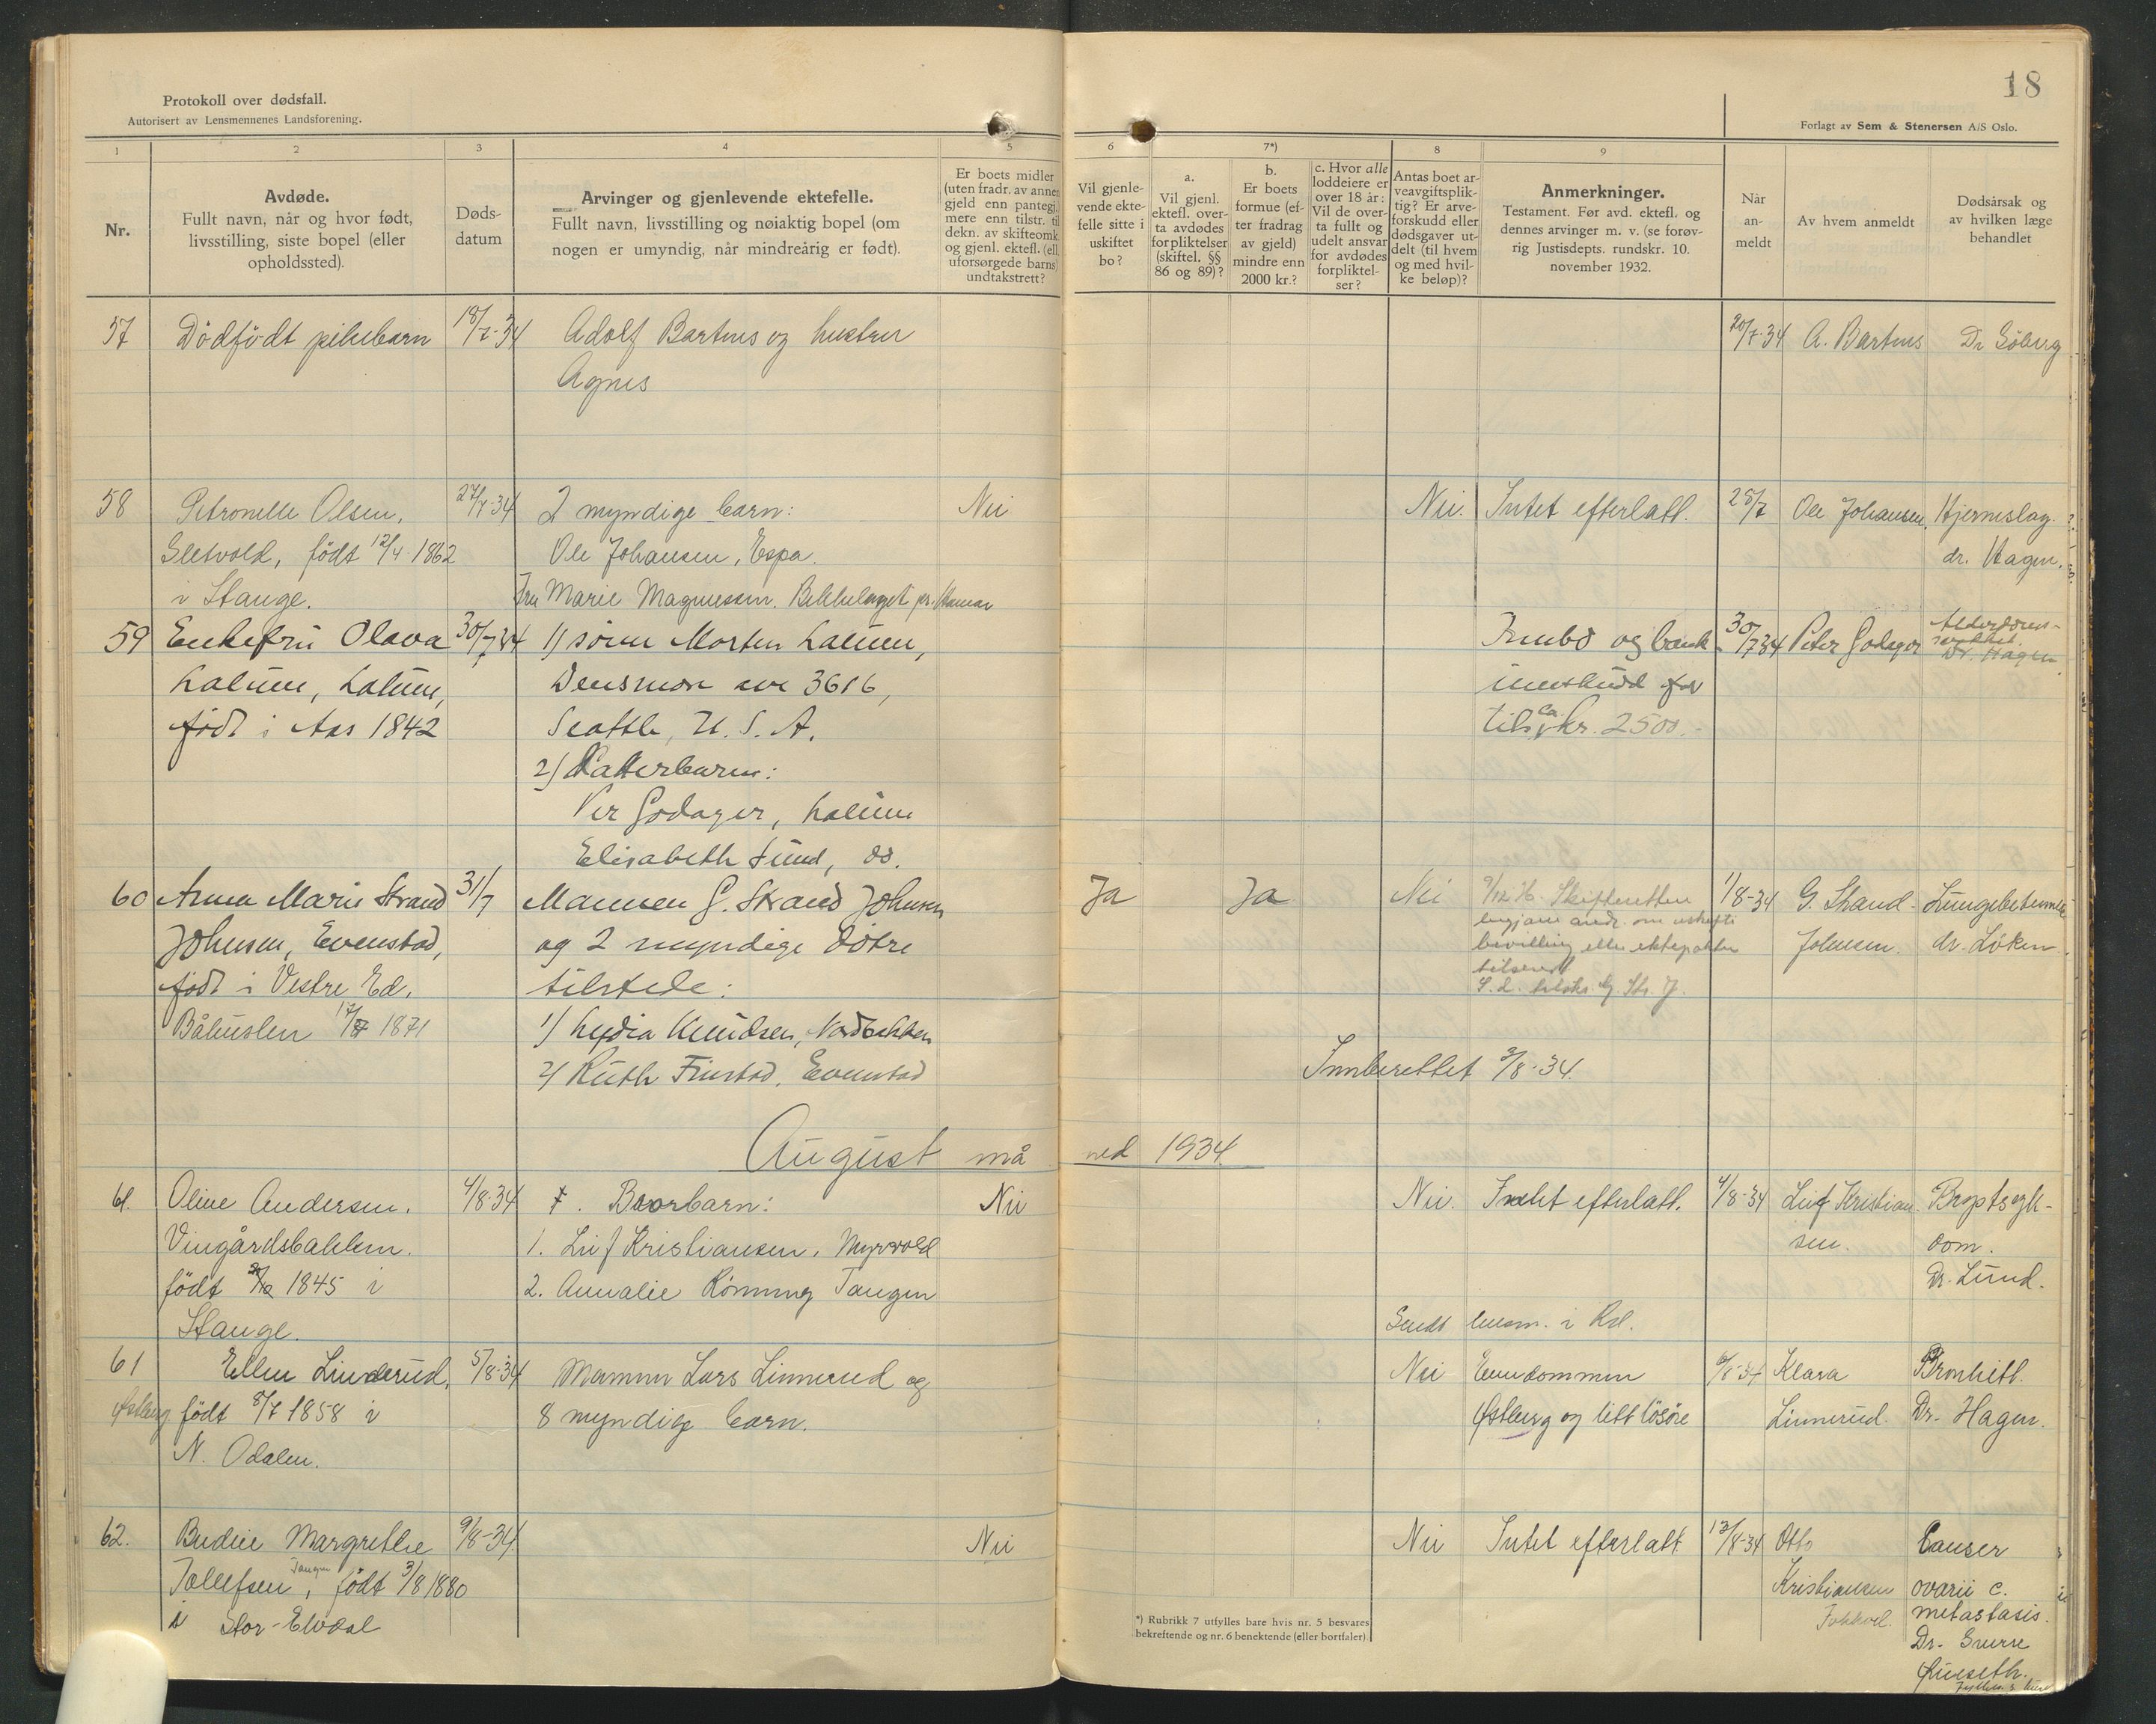 Protokoll over dødsfall.
Autorisert av Lensmennenes Landsforening.
18
Forlagt av Sem & Stenersen A/S Oslo.
1 2 3 4 5 6 7*) 8 9
Nr.
Avdøde.
Fullt navn, når og hvor født,
livsstilling, siste bopel (eller
opholdssted).
Døds-
datum
Arvinger og gjenlevende ektefelle.
Fullt navn, livsstilling og nøiaktig bopel (om
nogen er umyndig, når mindreårig er født).
Er boets midler
(uten fradr. av annen
gjeld enn pantegj.
mere enn tilstr. til
dekn. av skifteomk.
og gjenl. ektef. (ell.
uforsørgede barns)
undtakstrett?
Vil gjenle-
vende ekte-
felle sitte i
uskiftet
bo?
a.
Vil gjenl.
ektefl. over-
ta avdødes
forpliktelser
(skiftel. §§
86 og 89)?
b.
Er boets
formue (ef-
ter fradrag
av gjeld)
mindre enn
2000 kr.?
c. Hvor alle
loddeiere er
over 18 år:
Vil de over-
ta fullt og
udelt ansvar
for avdødes
forpliktel-
ser?
Antas boet ar-
veavgiftsplik-
tig? Er arve-
forskudd eller
dødsgaver ut-
delt (til hvem
og med hvil-
ke beløp)?
Anmerkninger.
Testament. Før avd. ektefl. og
dennes arvinger m. v. (se forøv-
rig Justisdepts. rundskr. 10.
november 1932.
Når
an-
meldt
Av hvem anmeldt
Dødsårsak og
av hvilken læge
behandlet
57 Dödfödt pikebarn 18/7-34 Adolf Bartnes og hustru 20/7-34 A. Bartnes Dr Söberg
Agnes
58 Petronelle Olsen, 27/7-34 2 myndige barn: Nei Nei. Intet efterlatt. 28/7 Ole Johansen, Hjerneslag.
Sletvold, født 12/4 1862 Ole Johansen, Espa. dr. Hagen.
i Stange. Fru Marie Magnussen. Bekkelaget pr. Hamar
59 Enkefru Olava 30/7 34 1) sönn Morten Lalum, Innbo og bank- 30/7 34 Peter Godager Alderdoms-
svakhet
Dr. Hagen
Lalum, Lalum, Densmore ave 3616, innskudd for
født i Aas 1842 Seattle, U. S. A. tils. ca. kr. 2500.-
2) Datterbarn:
Per Godager, Lalum
Elisabeth Lund, do.
60 Anna Marie Strand 31/7 Mannen G. Strand Johnsen Ja Ja Nei 1/8-34 G. Strand Lungebetennelse
Skifteretten
bevilling eller ektepakten
Johnsen, Evenstad, og 2 myndige døtre Johnsen. dr. Löken
født i Vestre Ed. tilstede:
Båhuslen 17/7 1871 1) Lydia Knudsen, Nordbekken
2) Ruth Finstad, Evenstad
Innberettet 3/8-34.
August måned 1934
61. Oline Andersen. 4/8-34 7. Brorbarn: Nei Nei. Intet efterlatt. 4/8-34 Leif Kristian- Brystsyk-
Vingårdsbakken. 1. Leif Kristiansen, Myrvold sen. dom.
født 1845 i 2. Annalie Rönning Tangen Dr. Lund.
Stange. Sendt lensm. i Rl.
61 Ellen Linnerud, 5/8-34 Mannen Lars Linnerud og Nei Eiendommen 6/8-34 Klara Bronkitt.
Østberg født 8/7 1858 i 8 myndige barn. Østberg og litt lösöre Linnerud. Dr. Hagen.
N. Odalen.
62. Budeie Margrethe 9/8-34. Nei Nei Intet efterlatt 13/8-34 Otto Cancer
Tollefsen, Tangen, født 3/8 1880 Kristiansen ovarii c.
i Stor-Elvdal metastasis.
Dr. Sverre
*) Rubrikk 7 utfylles bare hvis nr. 5 besvares
bekreftende og nr. 6 benektende (eller bortfaller).